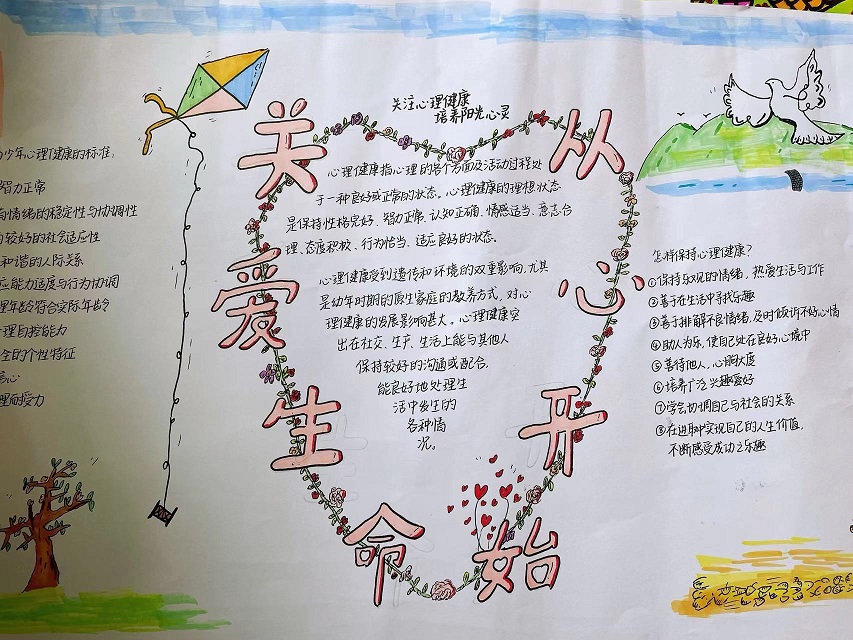 关注心理健康
培养阳光心灵
关爱生命
从心开始
心理健康指心理的各个方面及活动过程处
于一种良好或正常的状态。心理健康的理想状态
是保持性格完好、智力正常、认知正确、情感适当、意志合
理、态度积极、行为恰当、适应良好的状态。
心理健康受到遗传和环境的双重影响,尤其
是幼年时期的原生家庭的教养方式,对心
理健康的发展影响甚大。心理健康突
出在社交、生产、生活上能与其他人
保持较好的沟通或配合,
能良好地处理生
活中发生的
各种情
况。
少年心理健康的标准:
智力正常
情绪的稳定性与协调性
较好的社会适应性
和谐的人际关系
应能力适度与行为协调
理年龄符合实际年龄
心理自控能力
全的个性特征
心
理耐受力
怎样保持心理健康?
①保持乐观的情绪,热爱生活与工作
②善于在生活中寻找乐趣
③善于排解不良情绪,及时倾诉不好心情
④助人为乐,使自己处在良好心境中
⑤善待他人,心胸大度
⑥培养广泛兴趣爱好
⑦学会协调自己与社会的关系
⑧在进取中实现自己的人生价值,
不断感受成功之乐趣